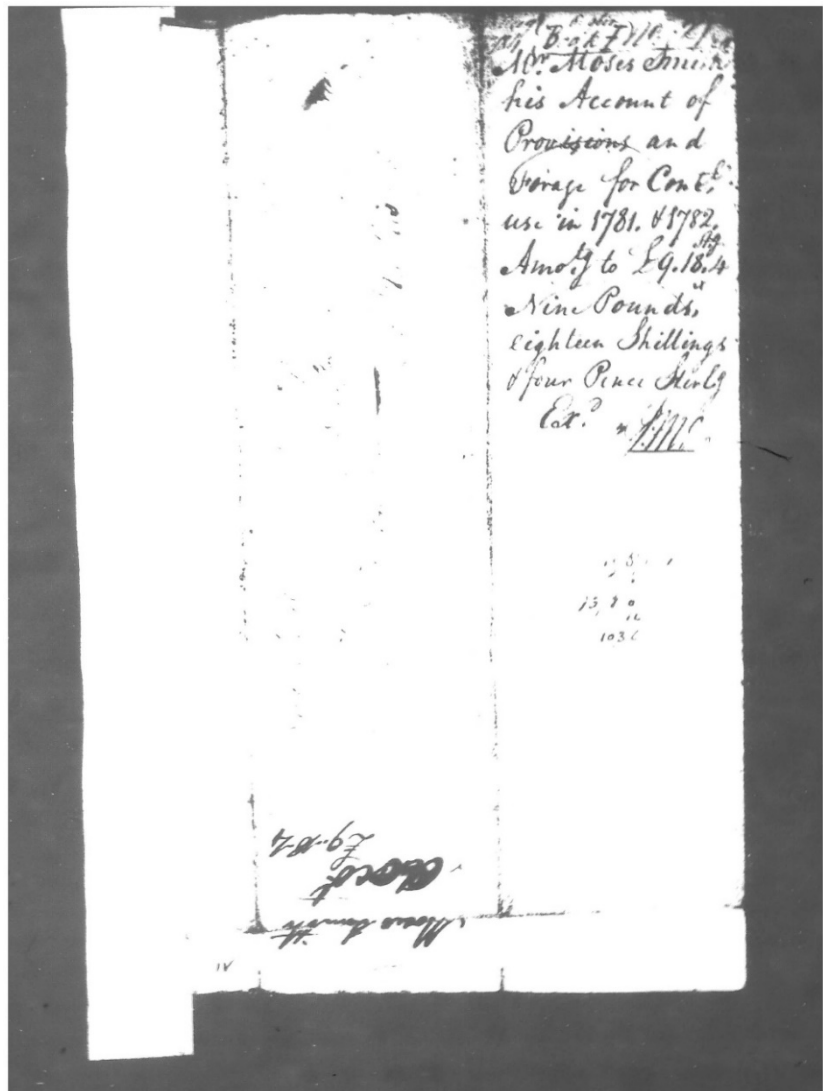 Mr. Moses Smith
his Account of
Provisions and
Forage for Contl.
use in 1781. & 1782.
Amotg to £9.18.4 Stg
Nine Pounds,
eighteen Shillings
& four Pence Sterlg
Exd.
1036
Moses Smith
Acct
£9-18-4
IV